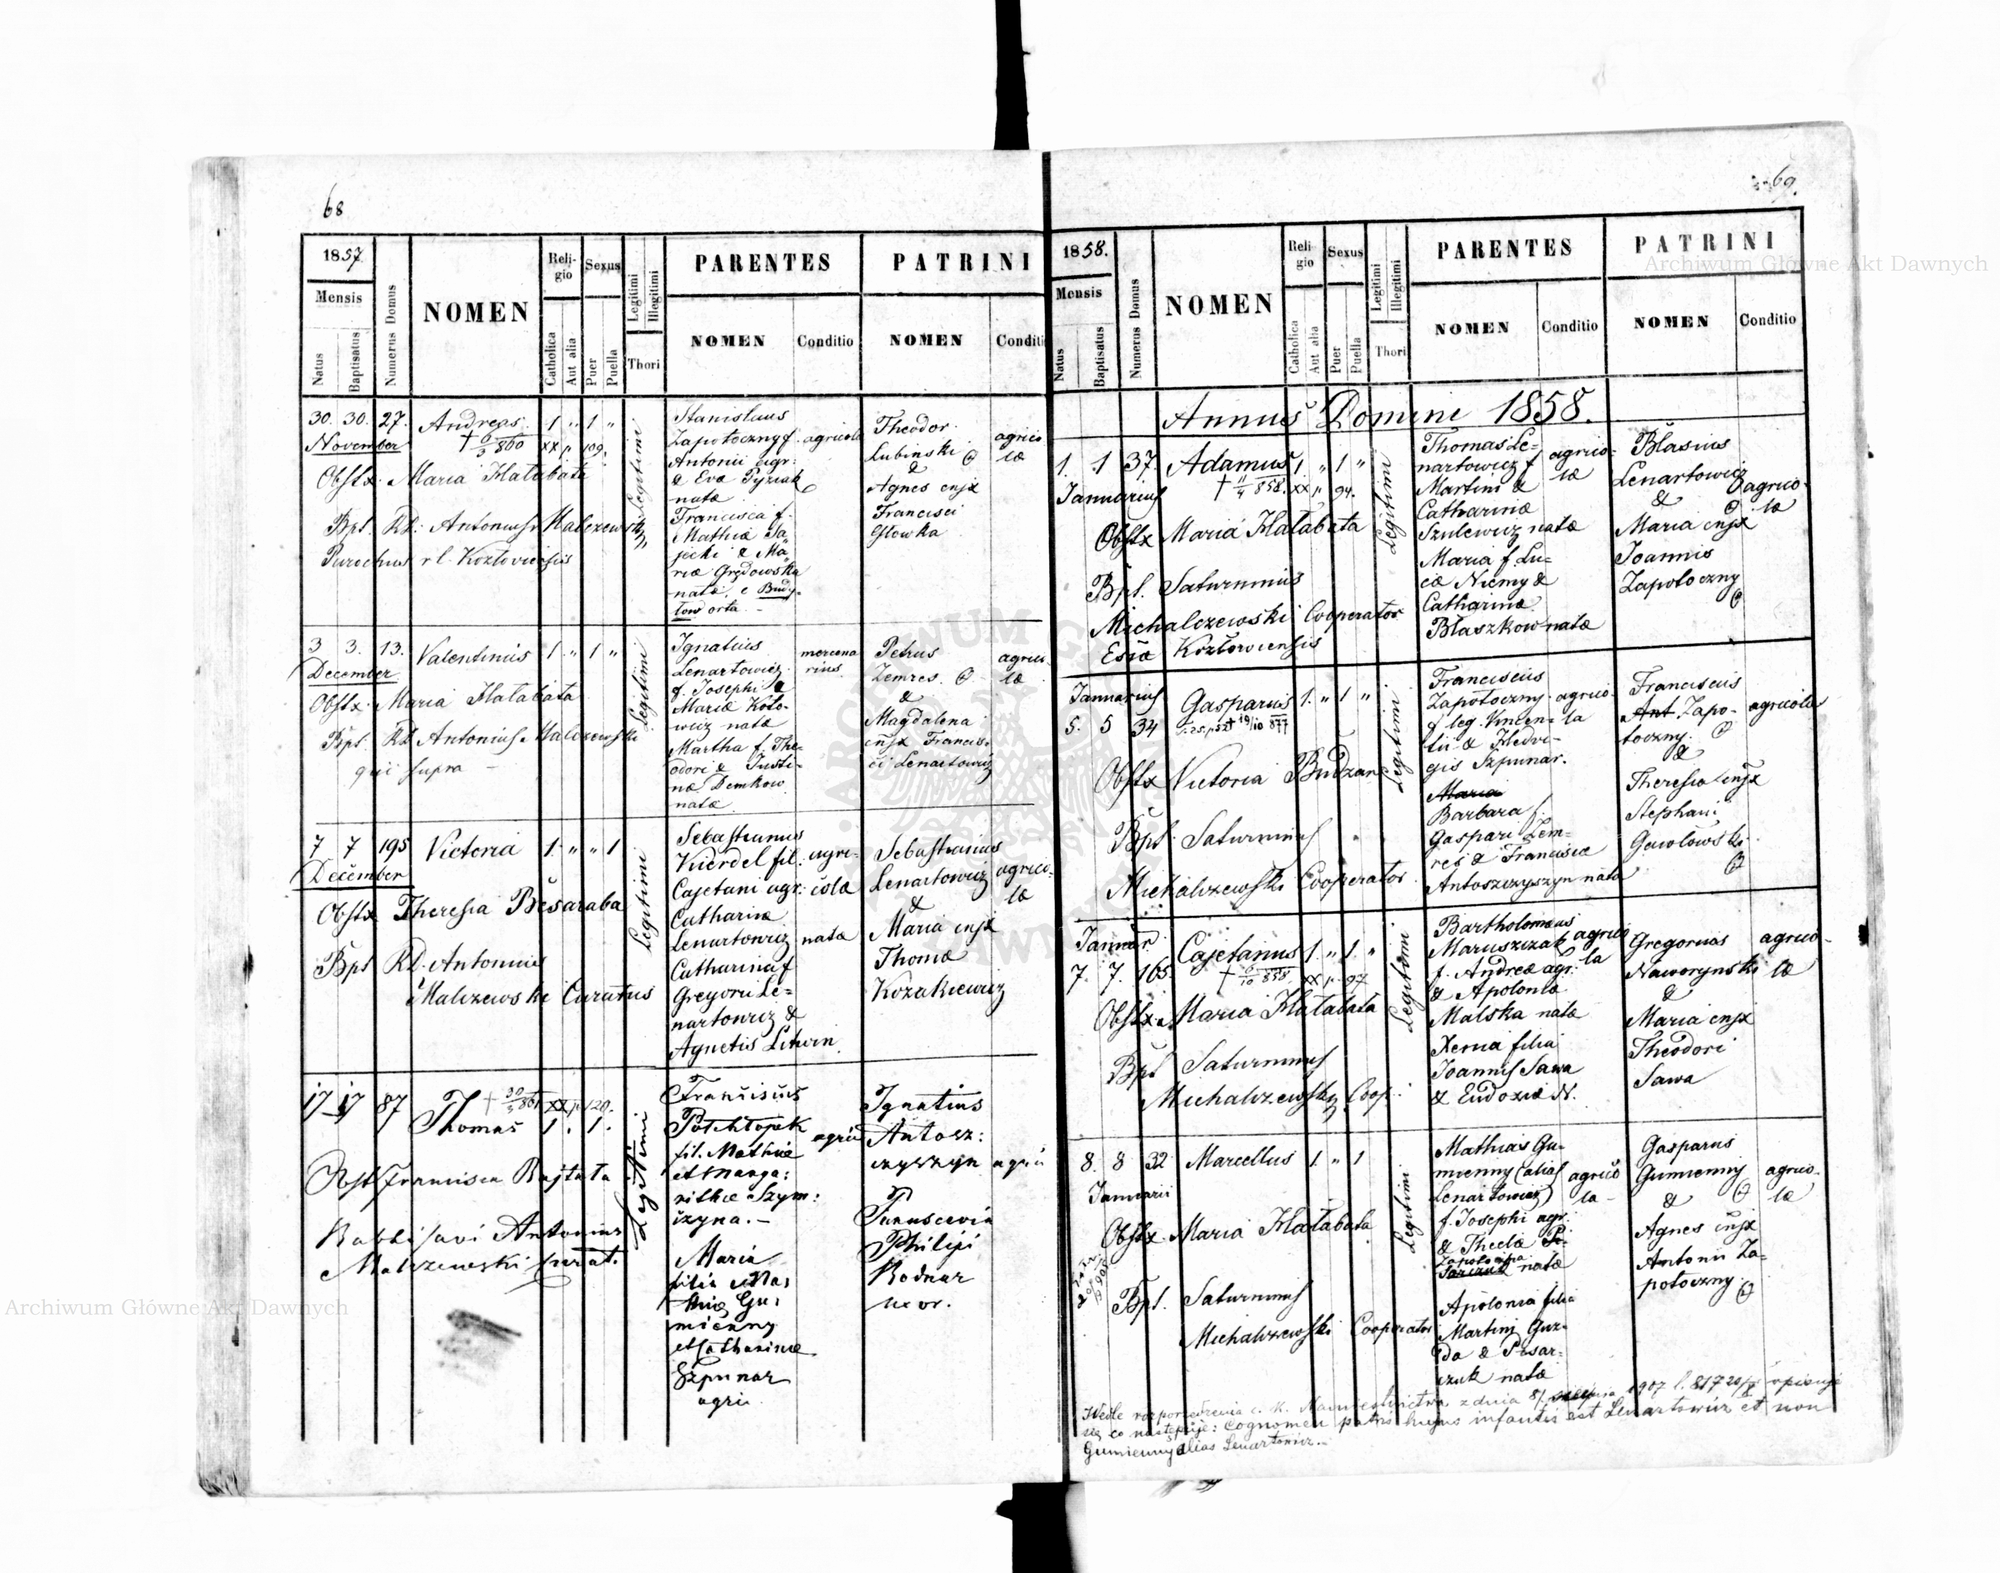 68
1857.
Mensis
Natus
Baptisatus
Numerus Domus
NOMEN
Religio
Catholica
Aut alia
Sexus
Puer
Puella
Legitimi
Illegitimi
Thori
PARENTES
NOMEN
Conditio
PATRINI
NOMEN
Conditi
30. 30. 27. Andreas 1 " 1 "
November
Obstx Maria Hałabata
Bpt. Rd. Antonius Malczewski
Parochus r. l. Kozłoviensis
Legitimi
Stanislaus
Zapotoczny f. agricola
Antonii agr.
& Eva Pyziak
nata
Francisca f.
Mathiæ Sa-
jecki & Ma-
riæ Grędowska
nata, e Budy-
łow orta.
Theodor
Łubinski
&
Agnes cnjx
Francisci
Głowka
agrico
læ
3 3. 13. Valentinus 1 " 1 "
December
Obstx Maria Hałabata
Bpt. Rd. Antonius Malczewski
qui supra
Legitimi
Ignatius
Lenartowicz
f. Josephi &
Mariæ Koto-
wicz natæ
Martha f. The-
odori & Justi-
næ Demkow
natæ
mercena
rius
Petrus
Zemres
&
Magdalena
cnjx Francis-
ci Lenartowicz
agrico
læ
7 7 195 Victoria 1 " " 1
December
Obstx Theresia Besaraba
Bpt Rd. Antonius
Malczewski Curatus
Legitimi
Sebastianus
Kierdel fil. agri-
Cajetani agr. colæ
Catharinæ
Lenartowicz natæ
Catharina f
Gregorii Le-
nartowicz &
Agnetis Litwin
Sebastianus
Lenartowicz
&
Maria cnjx
Thomæ
Kozakiewicz
agrico-
læ
17 17 87 Thomas 1. 1.
Obst Francisca Bajtała
Babtisavi Antonius
Malczewski Curat.
Legitimi
Francisius
Potchłopek agri
fil. Mathiæ
et Marga:
rithæ Szym:
czyna.-
Maria
filia Ma,
thiæ Gu,
mienny
et Catharinæ
Szpunar
agri
Ignatius
Antosz:
czyszyn agri
Philipi
Bodnar
uxor.
69.
1858.
Mensis
Natus
Baptisatus
Numerus Domus
NOMEN
Religio
Catholica
Aut alia
Sexus
Puer
Puella
Legitimi
Illegitimi
Thori
PARENTES
NOMEN
Conditio
PATRINI
NOMEN
Conditio
Annus Domini 1858.
1. 1 37. Adamus 1. " 1 "
Januarius
Obstx Maria Hałabata
Bpt. Saturninus
Michalczewski Cooperator
Kozłowiensis
Legitimi
Thomas Le-
nartowicz f
Martini &
Catharinæ
Szulewicz natæ
Maria f. Lu-
cæ Niemy &
Catharinæ
Błaszkow natæ
agrico-
læ
Błasius
Lenartowicz
&
Maria cnjx
Joannis
Zapotoczny
agrico-
læ
Januarius
5. 5 34 Gasparus 1. " 1 "
Obstx Victoria Budzan
Bpt. Saturninus
Michalczewski Cooperator
Legitimi
Franciscus
Zapotoczny agrico-
f leg. Vincen- la
tii & Hedvi-
gis Szpunar.
Maria
Barbara f.
Gaspari Zem-
res & Franciscæ
Antoszczyszyn natæ
Franciscus
Ant. Zapo-
toczny.
&
Theresia cnjx
Stephani
Gawłowski
agricolæ
Januar.
7. 7. 165. Cajetanus 1. " 1. "
Obstx Maria Hałabata
Bpt Saturninus
Michalczewski Coop.
Legitimi
Bartholomeus
Maruszczak agrico
f. Andreæ agr. la
& Apolonia
Malska natæ
Xenia filia
Joannis Sawa
& Eudoxiæ N.
Gregorius
Naworynski
&
Maria cnjx
Theodori
Sawa
agrico-
læ
8. 8 32 Marcellus 1. " 1
Januarii
Obstx Maria Hałabata
Bpt. Saturninus
Michalczewski Cooperator
Legitimi
Mathias Gu-
mienny (alias
Lenartowicz)
f. Josephi agr.
& Theclæ
natæ
Apolonia filia
Martini Guz-
da &
czuk natæ
agrico
la
Gasparus
Gumienny
&
Agnes cnjx
Antonii Za-
potoczny
agrico-
læ
Wedle rozporządzenia c. k. Namiestnictwa z dnia 1907 opisuje
się co następuje: Cognomen patris hujus infantis est Lenartowicz et non
Gumienny alias Lenartowicz.
Archiwum Główne Akt Dawnych
Archiwum Główne Akt Dawnych